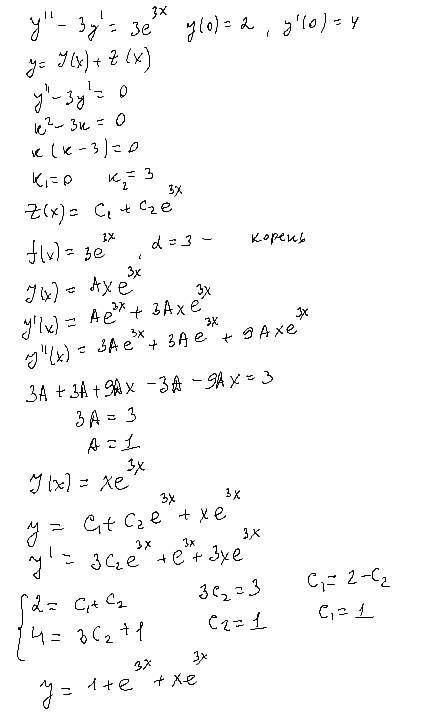 y'' - 3y' = 3e^{3x}   y(0) = 2 , y'(0) = 4
y = J(x) + Z(x)
y'' - 3y' = 0
к² - 3к = 0
к(к - 3) = 0
к₁ = 0   к₂ = 3
Z(x) = C₁ + C₂e^{3x}
f(x) = 3e^{3x} , α = 3 - корень
J(x) = Axe^{3x}
y'(x) = Ae^{3x} + 3Axe^{3x}
y''(x) = 3Ae^{3x} + 3Ae^{3x} + 9Axe^{3x}
3A + 3A + 9Ax - 3A - 9Ax = 3
3A = 3
A = 1
J(x) = xe^{3x}
y = C₁ + C₂e^{3x} + xe^{3x}
y' = 3C₂e^{3x} + e^{3x} + 3xe^{3x}
{ 2 = C₁ + C₂   3C₂ = 3   C₁ = 2 - C₂
4 = 3C₂ + 1   C₂ = 1   C₁ = 1
y = 1 + e^{3x} + xe^{3x}